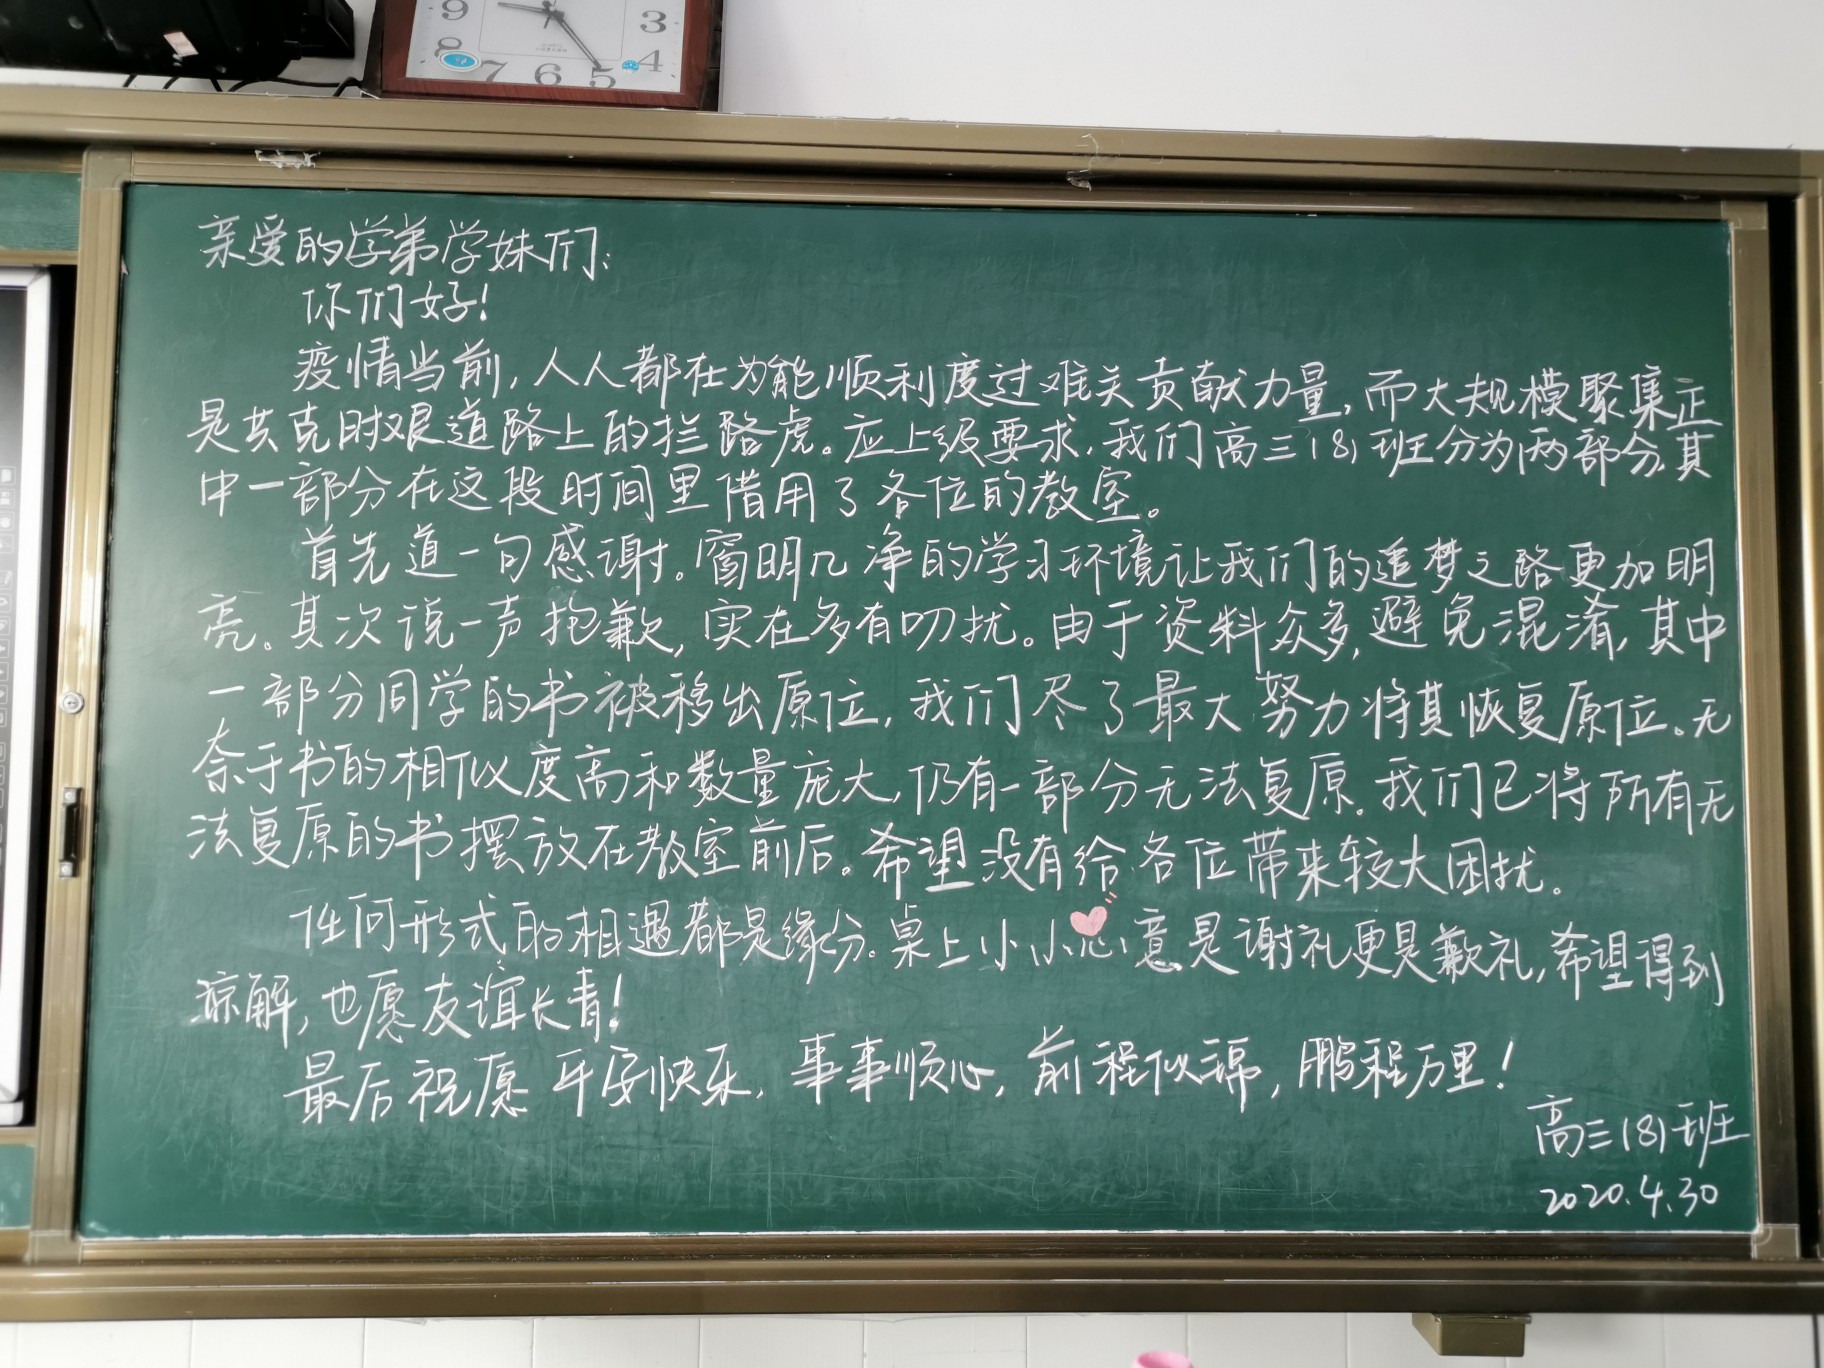 9 3
8 4
7 6 5
亲爱的学弟学妹们:
你们好!
疫情当前,人人都在为能顺利度过难关贡献力量,而大规模聚集正
是共克时艰道路上的拦路虎。应上级要求,我们高三(8)班分为两部分,其
中一部分在这段时间里借用了各位的教室。
首先道一句感谢。窗明几净的学习环境让我们的追梦之路更加明
亮。其次说一声抱歉,实在多有叨扰。由于资料众多,避免混淆,其中
一部分同学的书被移出原位,我们尽了最大努力将其恢复原位。无
奈于书的相似度高和数量庞大,仍有一部分无法复原。我们已将所有无
法复原的书摆放在教室前后。希望没有给各位带来较大困扰。
任何形式的相遇都是缘分。桌上小小心意是谢礼更是歉礼,希望得到
谅解,也愿友谊长青!
最后祝愿平安快乐,事事顺心,前程似锦,鹏程万里!
高三(8)班
2020.4.30